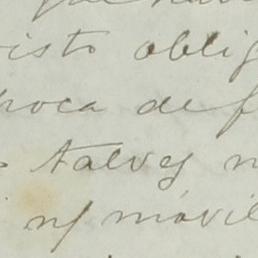 visto oblig
poca de f
talvez n
n/ móvil